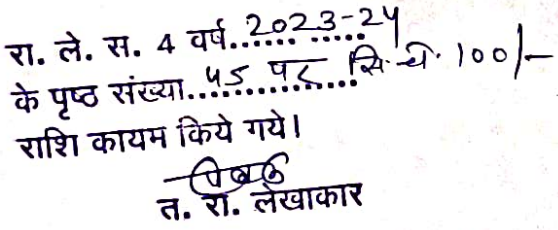 रा. ले. स. 4 वर्ष..2023-24
के पृष्ठ संख्या..45 पर सि. चे. 100/-
राशि कायम किये गये।
त. रा. लेखाकार